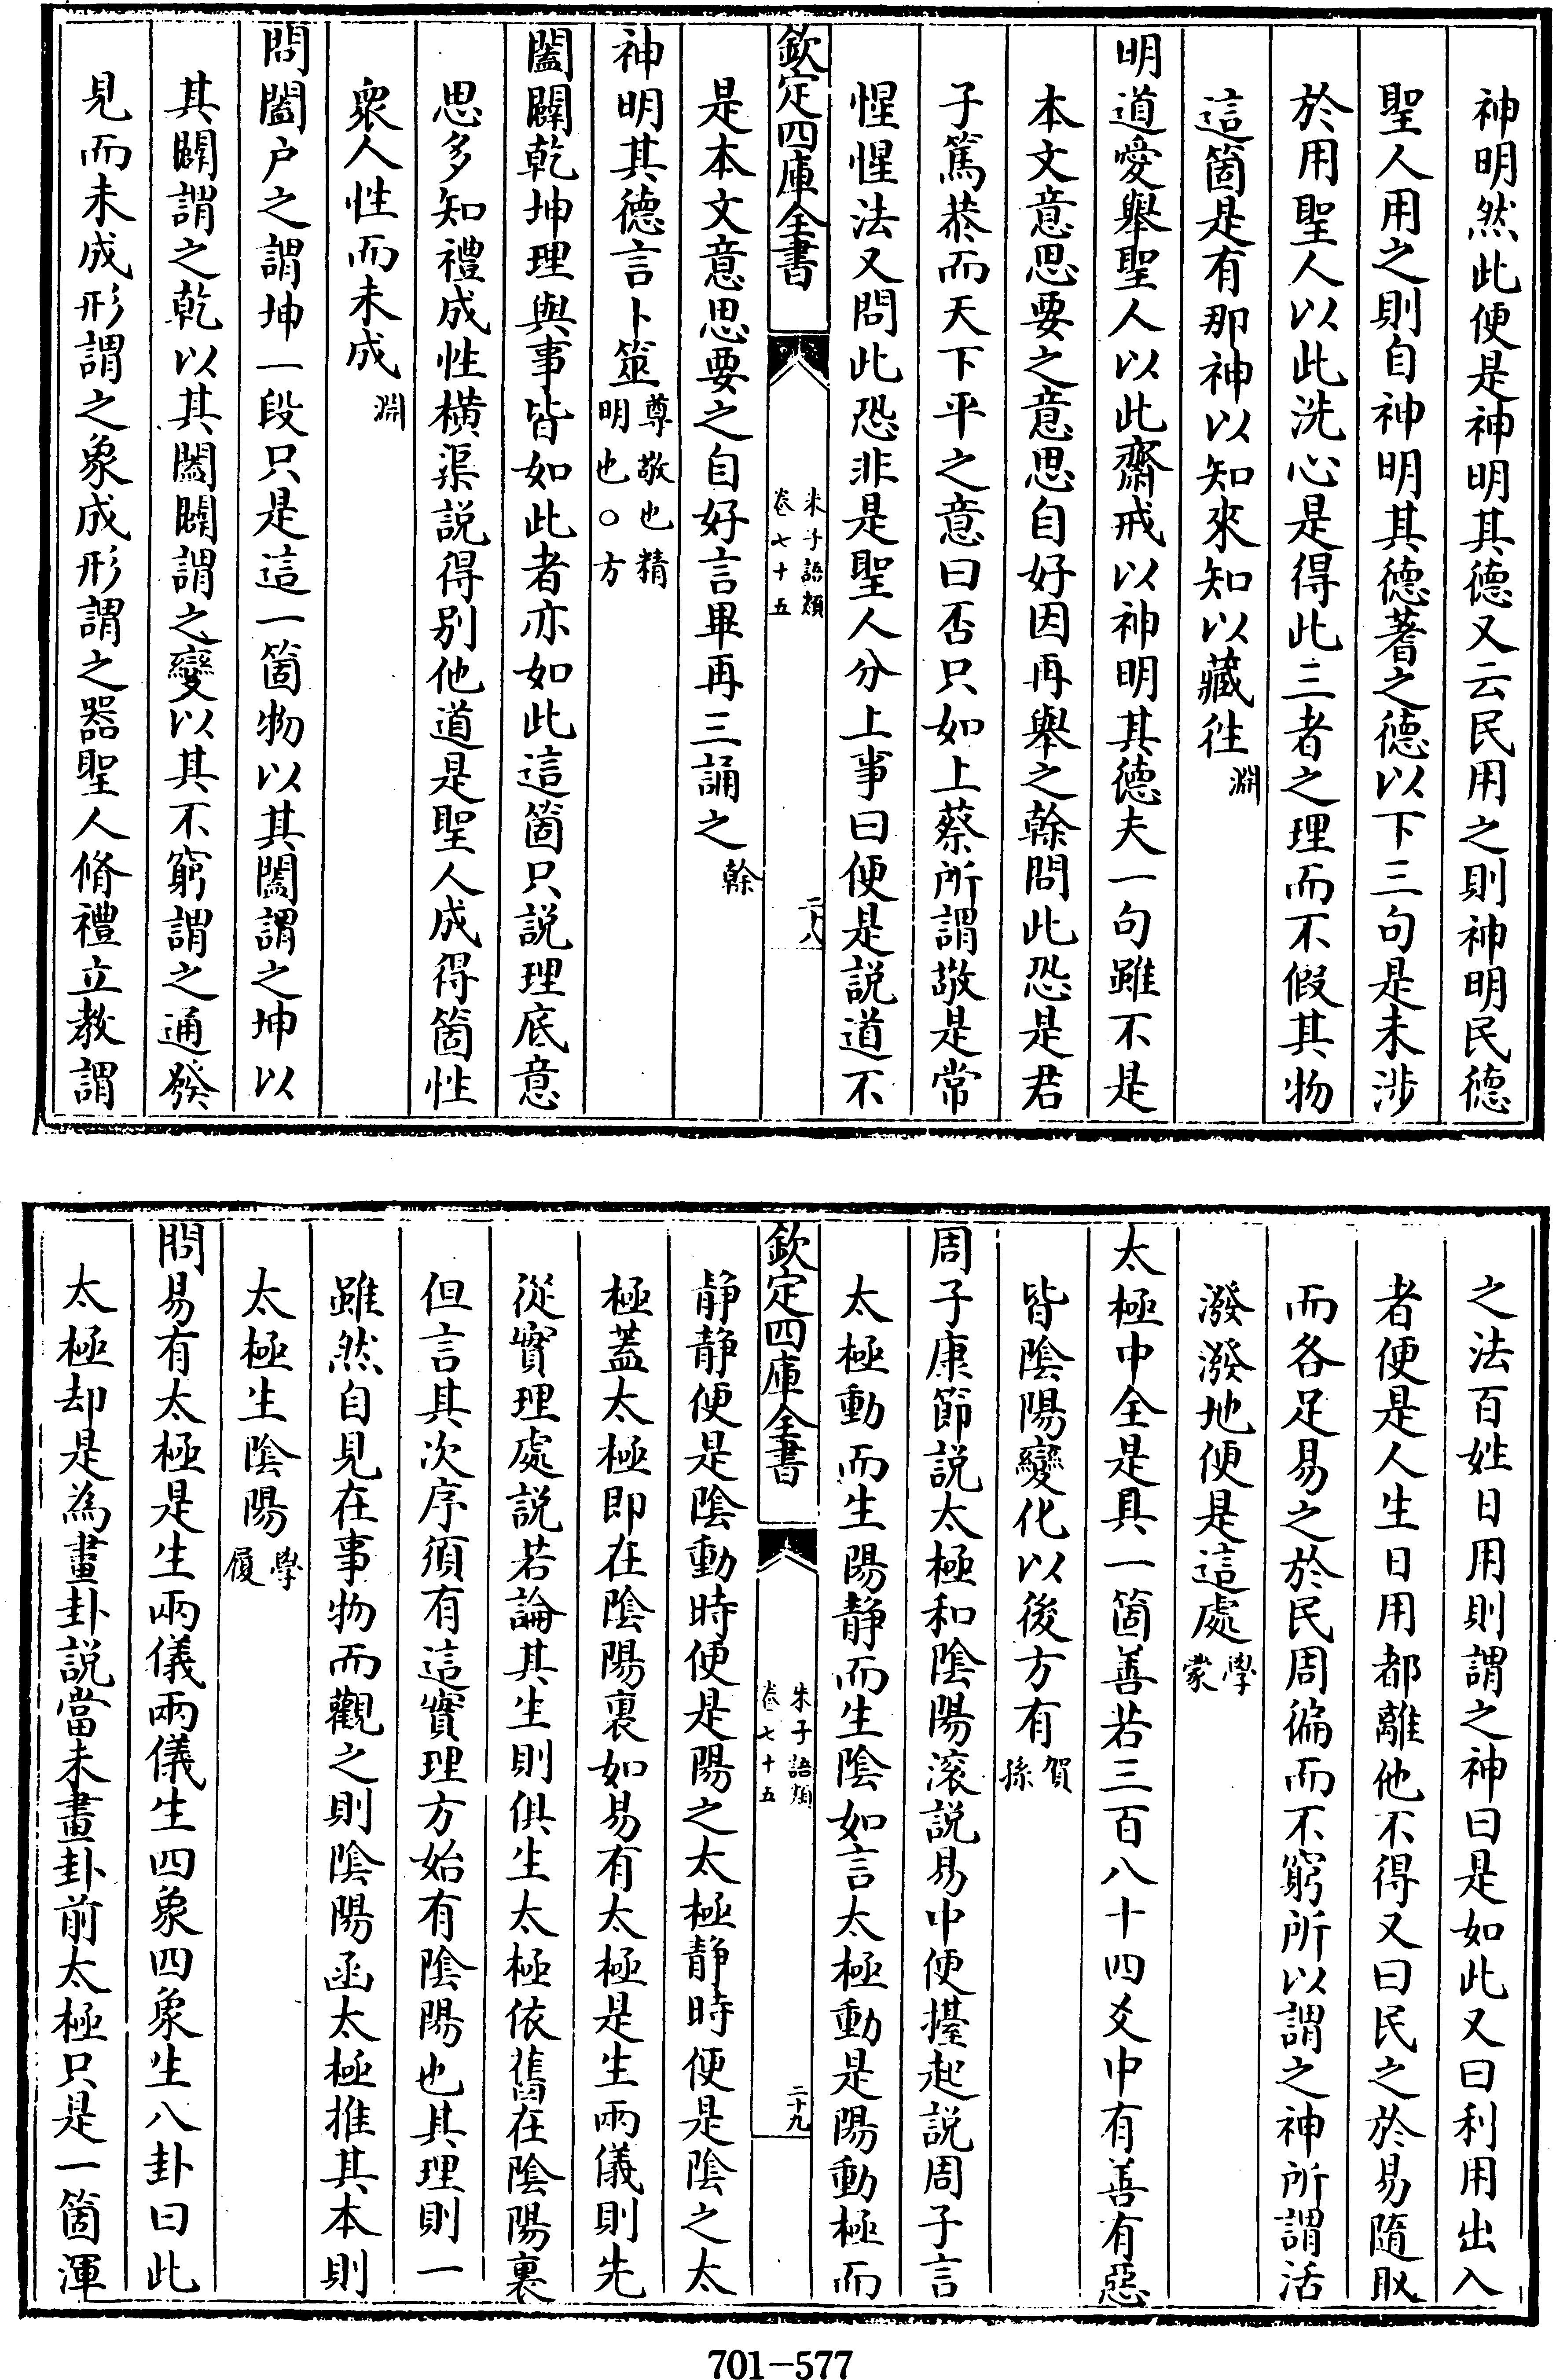 神明然此便是神明其德又云民用之則神明民德
聖人用之則自神明其德蓍之德以下三句是未涉
於用聖人以此洗心是得此三者之理而不假其物
這箇是有那神以知來知以藏往淵
明道愛舉聖人以此齋戒以神明其德夫一句雖不是
本文意思要之意思自好因再舉之榦問此恐是君
子篤恭而天下平之意曰否只如上蔡所謂敬是常
惺惺法又問此恐非是聖人分上事曰便是說道不
欽定四庫全書
朱子語類
卷七十五
二十八
是本文意思要之自好言畢再三誦之榦
神明其德言卜筮尊敬也精明也○方
闔闢乾坤理與事皆如此者亦如此這箇只說理底意
思多知禮成性橫渠說得别他道是聖人成得箇性
衆人性而未成淵
問闔户之謂坤一段只是這一箇物以其闔謂之坤以
其闢謂之乾以其闔闢謂之變以其不窮謂之通發
見而未成形謂之象成形謂之器聖人脩禮立教謂
之法百姓日用則謂之神曰是如此又曰利用出入
者便是人生日用都離他不得又曰民之於易隨取
而各足易之於民周徧而不窮所以謂之神所謂活
潑潑地便是這處學蒙
太極中全是具一箇善若三百八十四爻中有善有惡
皆陰陽變化以後方有賀孫
周子康節說太極和陰陽滚說易中便擡起說周子言
太極動而生陽静而生陰如言太極動是陽動極而
欽定四庫全書
朱子語類
卷七十五
二十九
静静便是陰動時便是陽之太極静時便是陰之太
極蓋太極即在陰陽裏如易有太極是生兩儀則先
從實理處說若論其生則俱生太極依舊在陰陽裏
但言其次序須有這實理方始有陰陽也其理則一
雖然自見在事物而觀之則陰陽函太極推其本則
太極生陰陽學履
問易有太極是生兩儀兩儀生四象四象生八卦曰此
太極却是為畫卦說當未畫卦前太極只是一箇渾
701-577